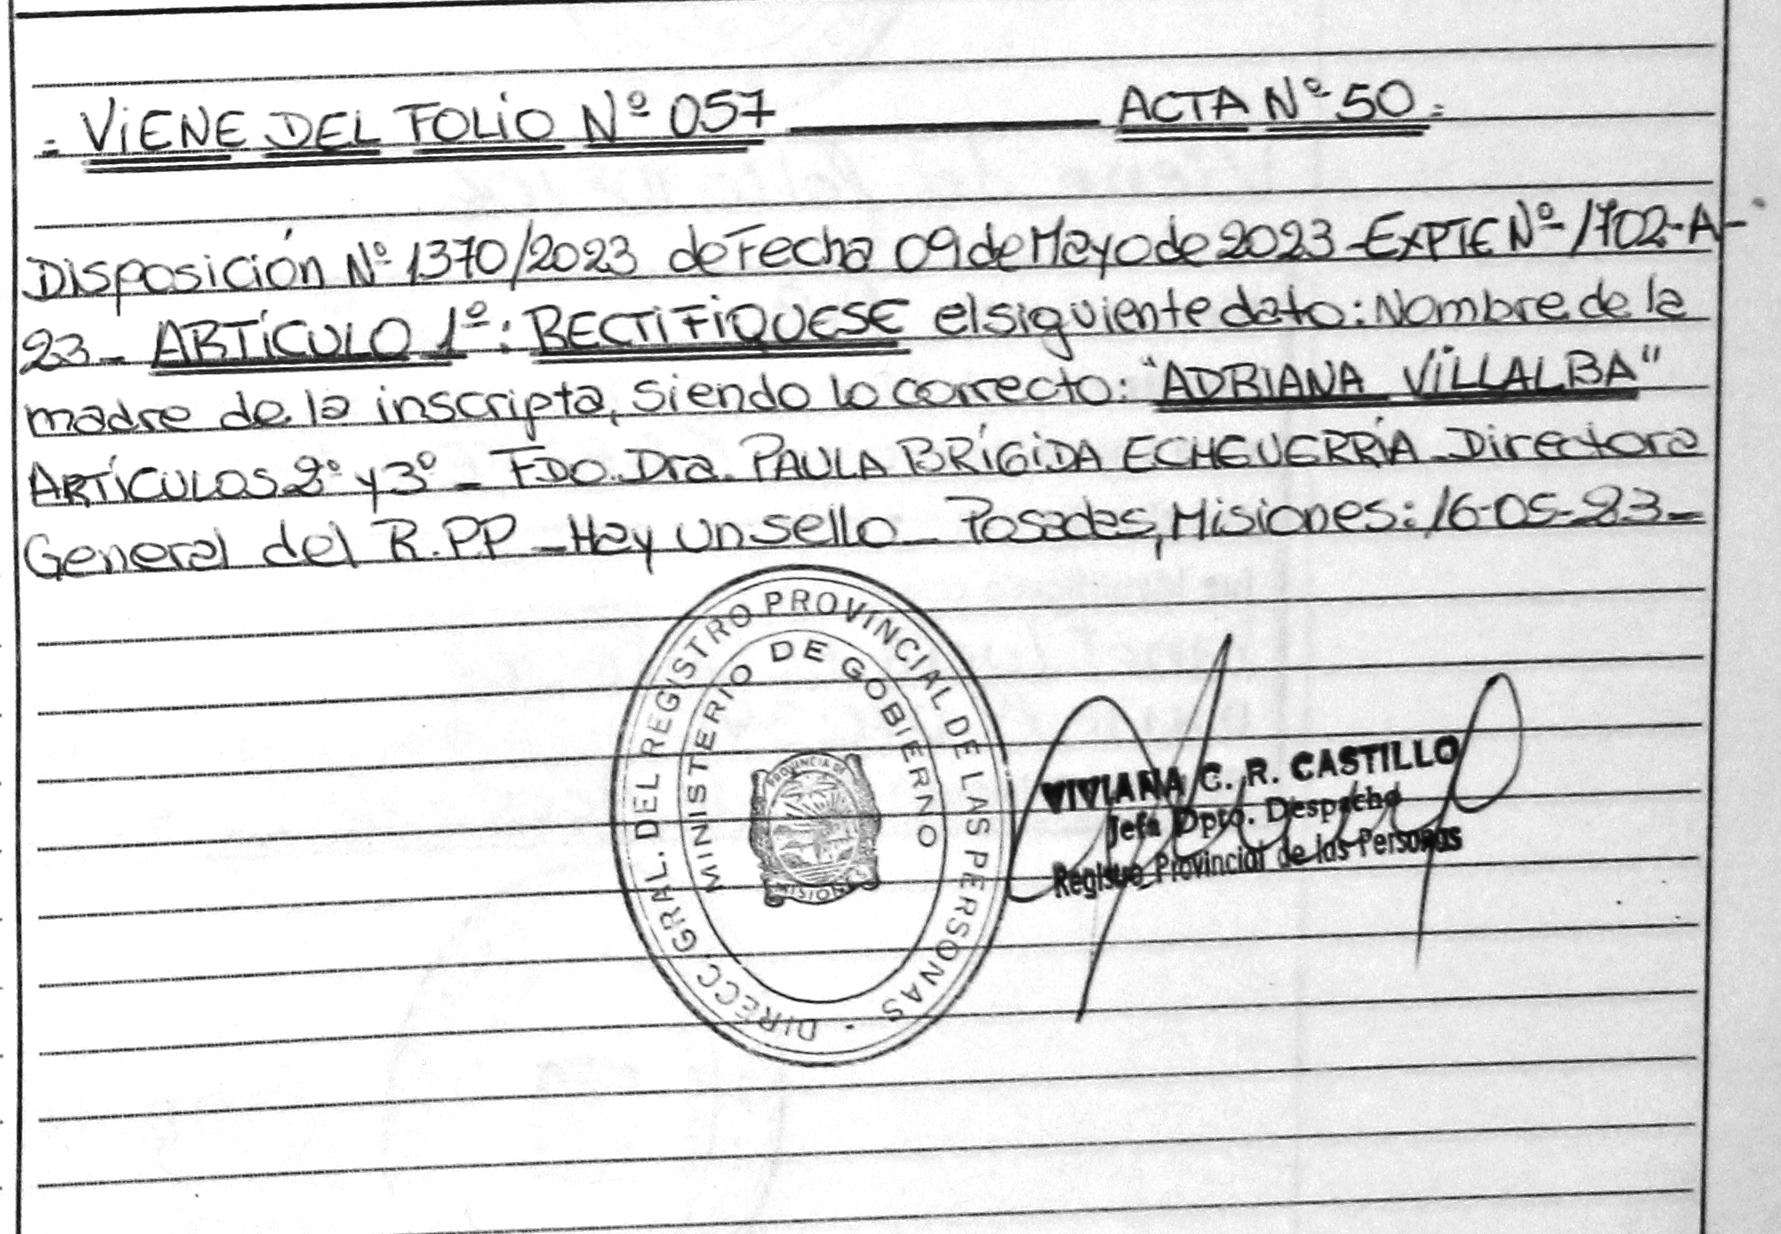 = VIENE DEL FOLIO Nº 057 ______ ACTA Nº 50 =
Disposición Nº 1370/2023 de Fecha 09 de Mayo de 2023 - EXPTE Nº 1702-A-
23 - ARTÍCULO 1º: RECTIFÍQUESE el siguiente dato: Nombre de la
madre de la inscripta, siendo lo correcto: "ADRIANA VILLALBA"
ARTÍCULOS 2º y 3º - FDO. Dra. PAULA BRÍGIDA ECHEVERRÍA - Directora
General del R.P.P - Hay un sello - Posadas, Misiones: 16-05-23 -
DIRECC. GRAL. DEL REGISTRO PROVINCIAL DE LAS PERSONAS
MINISTERIO DE GOBIERNO
PROVINCIA DE
MISIONES
VIVIANA C. R. CASTILLO
Jefa Dpto. Despacho
Registro Provincial de las Personas